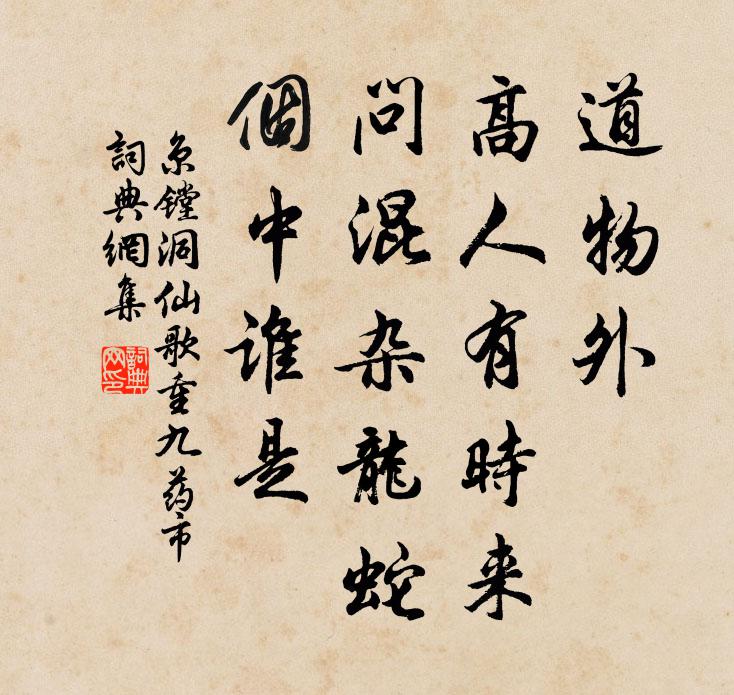 道物外
高人有時来
問混杂龍蛇
個中誰是
京鏜洞仙歌重九药市
詞典網集
詞典网印